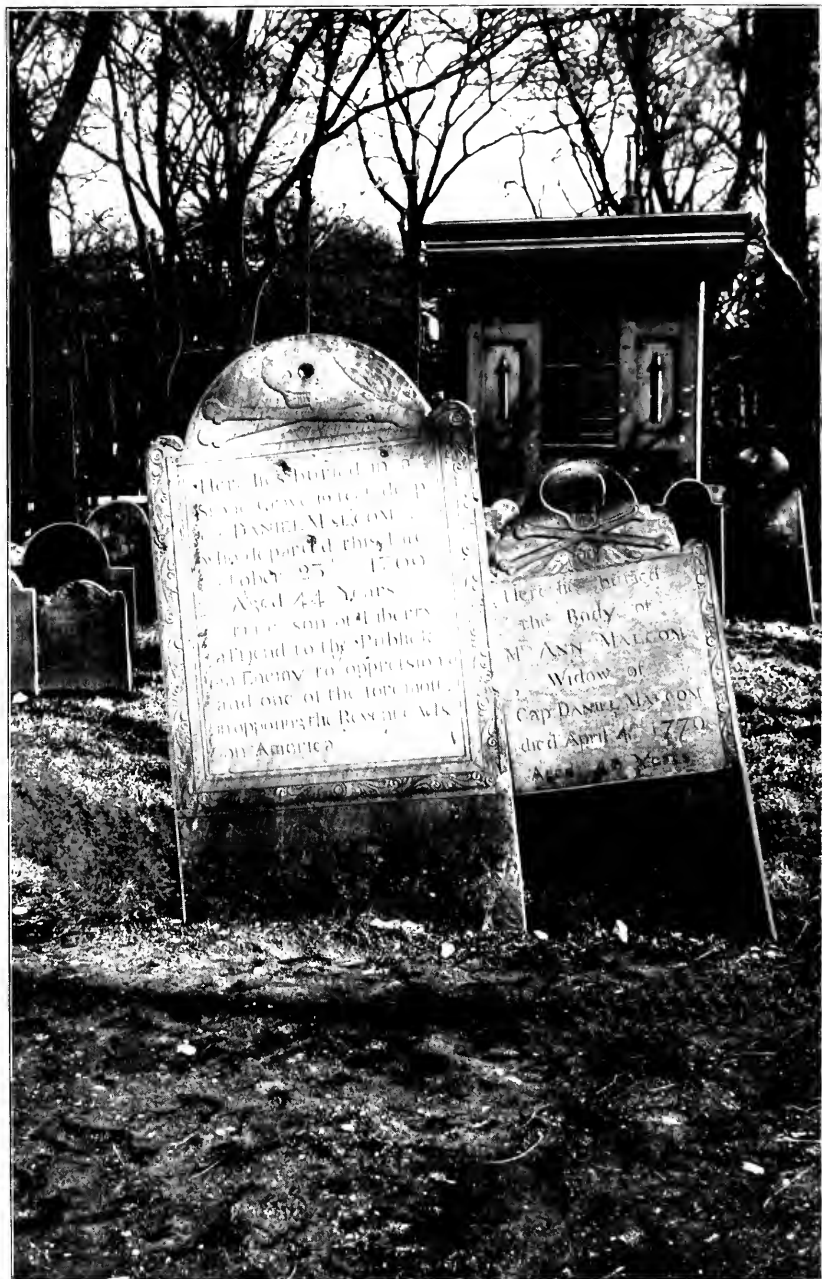 Here lies buried in a
Stone Grave 10 feet deep
DANIEL MALCOM
who departed this Life
october 23 1769
Aged 44 Years
a true son of Liberty
a friend to the Publick
an Enemy to oppression
and one of the foremost
in opposing the Revenue Acts
on America
Here lies buried
the Body of
Mrs ANN MALCOM
Widow of
Capt DANIEL MALCOM
died April 4th 1770
Aged Years